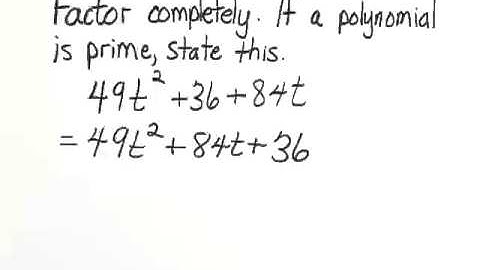 Factor completely. If a polynomial
is prime, state this.
49t² + 36 + 84t
= 49t² + 84t + 36